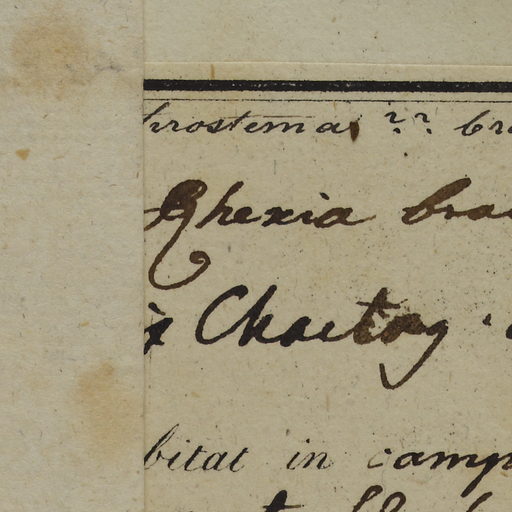 hrostema ?? br
Rhexia bra
x Chaetog.
bitat in camp